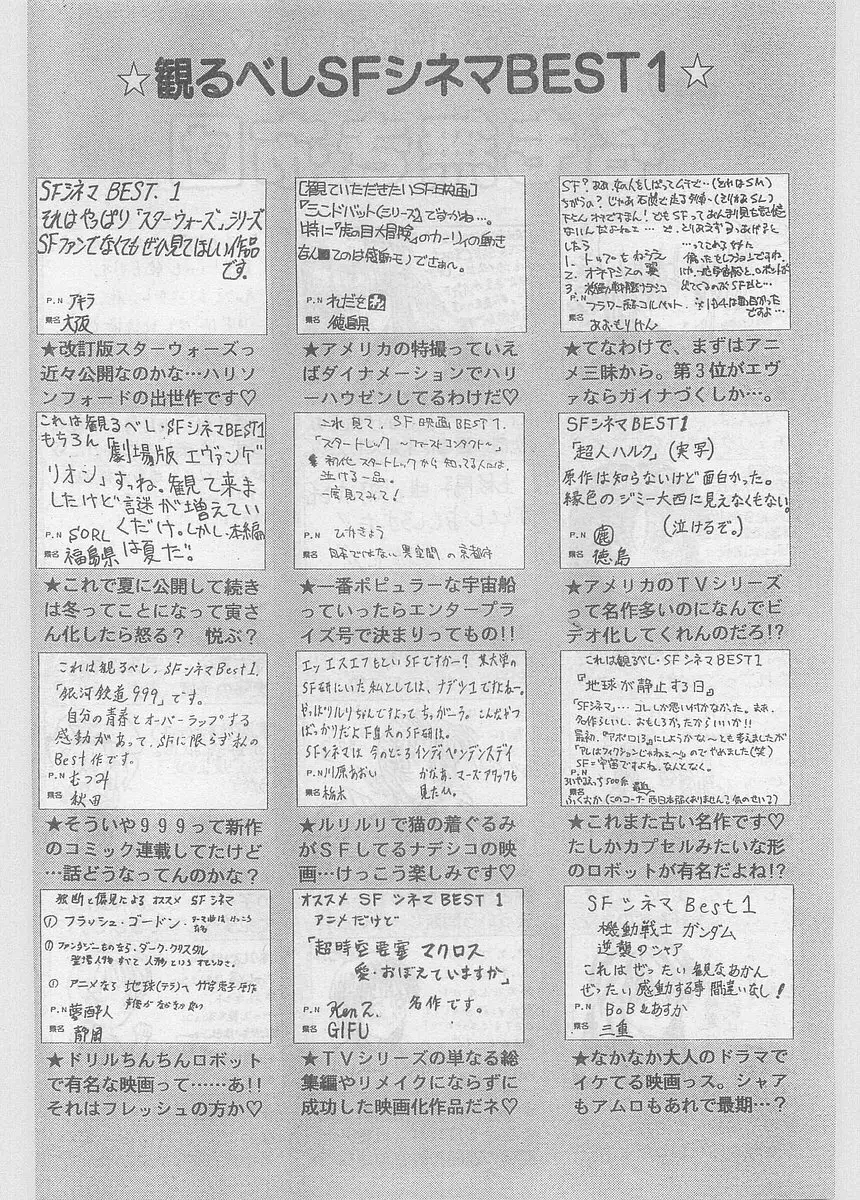 ☆観るべしSFシネマBEST1☆
SFシネマ BEST. 1
それはやっぱり「スターウォーズ」シリーズ
SFファンでなくてもぜひ見てほしい作品
です。
P.N アキラ
県名 大阪
★改訂版スターウォーズっ
近々公開なのかな…ハリソ
ンフォードの出世作です♡
[観ていただきたいSF映画]
『シンドバット(シリーズ)』ですかね…。
特に『虎の目大冒険』のカーリィの動き
は感動モノでさぁ〜。
P.N れだを
県名 徳島県
★アメリカの特撮っていえ
ばダイナメーションでハリ
ーハウゼンしてるわけだ♡
したら
1. トップをねらえ
2. オネアミスの翼
3.
P.N フラワー
県名 あおもりけん
★てなわけで、まずはアニ
メ三昧から。第3位がエヴ
ァならガイナづくしか…。
これは観るべし・SFシネマBEST1
もちろん「劇場版 エヴァンゲ
リオン」すっね。観て来ま
したけど謎が増えてい
くだけ。しかし、本編
は夏だ。
P.N SORL
県名 福島県
★これで夏に公開して続き
は冬ってことになって寅さ
ん化したら怒る? 悦ぶ?
これ見て、SF映画BEST1.
「スタートレック 〜ファーストコンタクト〜」
初代スタートレックから知ってる人には、
泣ける一品。
一度見てみて!
P.N ひかきょう
県名 日本ではない異空間の京都府
★一番ポピュラーな宇宙船
っていったらエンタープラ
イズ号で決まりってもの!!
SFシネマBEST1
「超人ハルク」(実写)
原作は知らないけど面白かった。
緑色のジミー大西に見えなくもない。
(泣けるぞ。)
P.N
県名 徳島
★アメリカのTVシリーズ
って名作多いのになんでビ
デオ化してくれんのだろ!?
これは観るべし、SFシネマBest1.
「銀河鉄道999」です。
自分の青春とオーバーラップする
感動があって、SFに限らず私の
Best作です。
P.N むつみ
県名 秋田
★そういや999って新作
のコミック連載してたけど
…話どうなってんのかな?
エッ エスエフもといSFですかー? 某大学の
SF研にいた私としては、ナデシコですよねー。
やっぱりルリちゃんですよってちっがーう。こんなやつ
ばっかりだよF島大のSF研は。
SFシネマは今のところインディペンデンスデイ
かなぁ。マーズアタックも
見たい。
P.N 川原あおい
県名 栃木
★ルリルリで猫の着ぐるみ
がSFしてるナデシコの映
画…けっこう楽しみです♡
これは観るべし・SFシネマBEST1
『地球が静止する日』
「SFシネマ」…コレしか思い付かなかった。まぁ、
名作らしいし、おもしろかったからいいか!!
最初、『アポロ13』にしようかな〜とも考えましたが
「アレはフィクションじゃねぇ〜」のでやめました(笑)
SF=宇宙ですよね、なんとなく。
P.N
県名 ふくおか
★これまた古い名作です♡
たしかカプセルみたいな形
のロボットが有名だよね!?
独断と偏見による オススメ SFシネマ
① フラッシュ・ゴードン・テーマ曲はけっこう有名
① ファンタジーものなら・ダーク・クリスタル
登場人物すべて人形というすごさ。
① アニメなら 地球(テラ)へ 竹宮恵子原作
P.N 夢酔人
県名 静岡
★ドリルちんちんロボット
で有名な映画って……あ!!
それはフレッシュの方か♡
オススメ SFシネマBEST1
アニメだけど
「超時空要塞 マクロス
愛・おぼえていますか」
名作です。
P.N KenZ.
県名 GIFU
★TVシリーズの単なる総
集編やリメイクにならずに
成功した映画化作品だネ♡
SFシネマBest1
機動戦士ガンダム
逆襲のシャア
これはぜったい観なあかん
ぜったい感動する事間違いなし!
P.N BoBあすか
県名 三重
★なかなか大人のドラマで
イケてる映画っス。シャア
もアムロもあれで最期…?